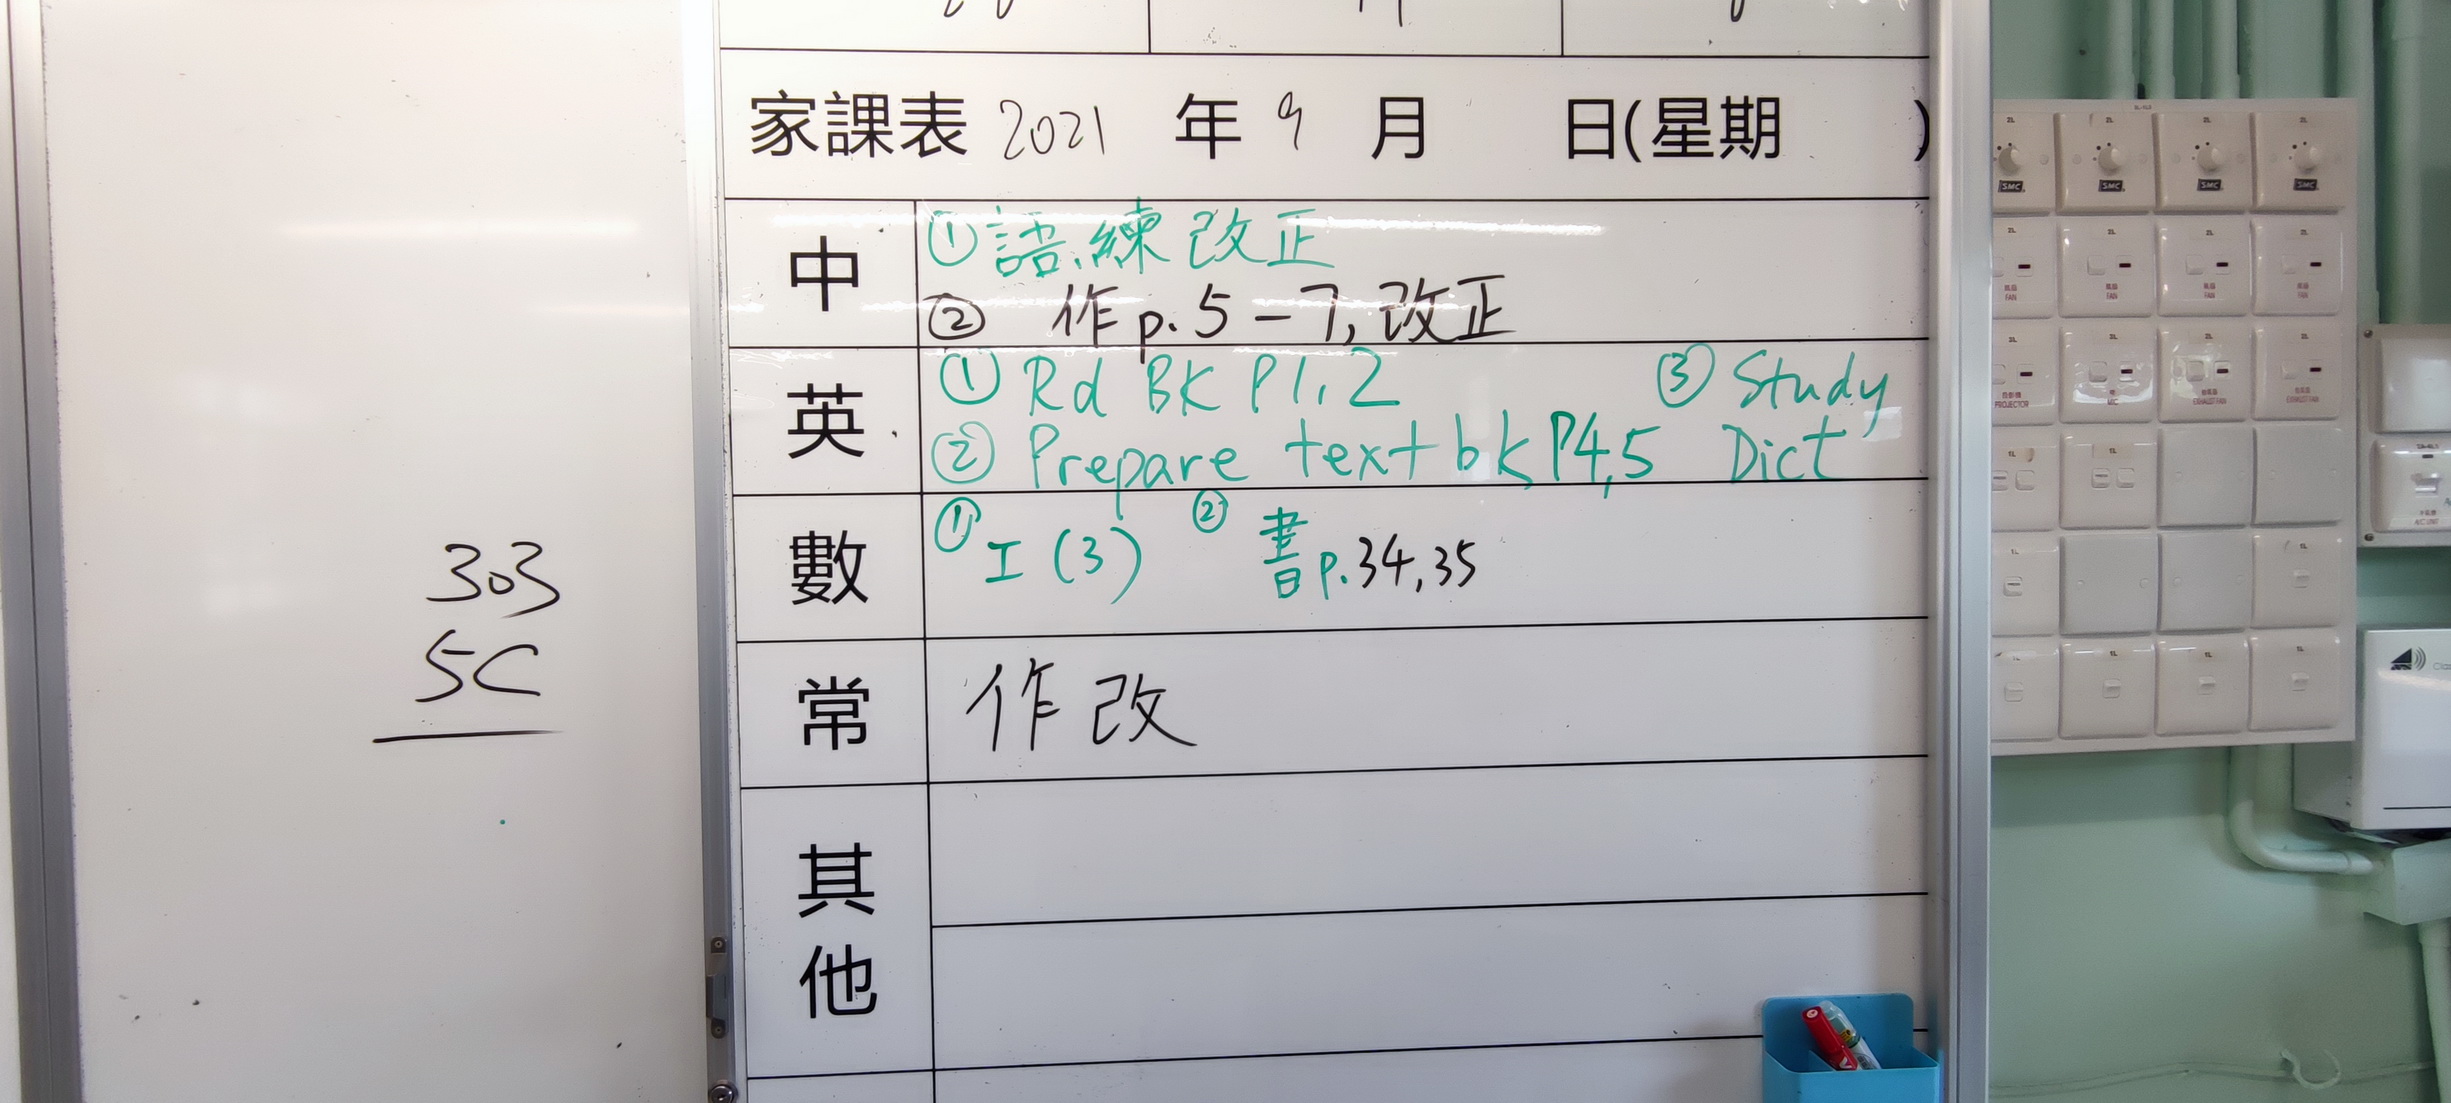 家課表 2021 年 9 月 日(星期 )
中
① 語.練 改正
② 作 p. 5-7, 改正
英
① Rd BK P1, 2 ③ Study
② Prepare text bk P4,5 Dict
數
① I (3) ② 書 p.34,35
常
作改
其
他
303
5C
SMC SMC SMC SMC
FAN FAN FAN FAN
PROJECTOR MIC EXHAUST FAN EXHAUST FAN
A/C UNIT